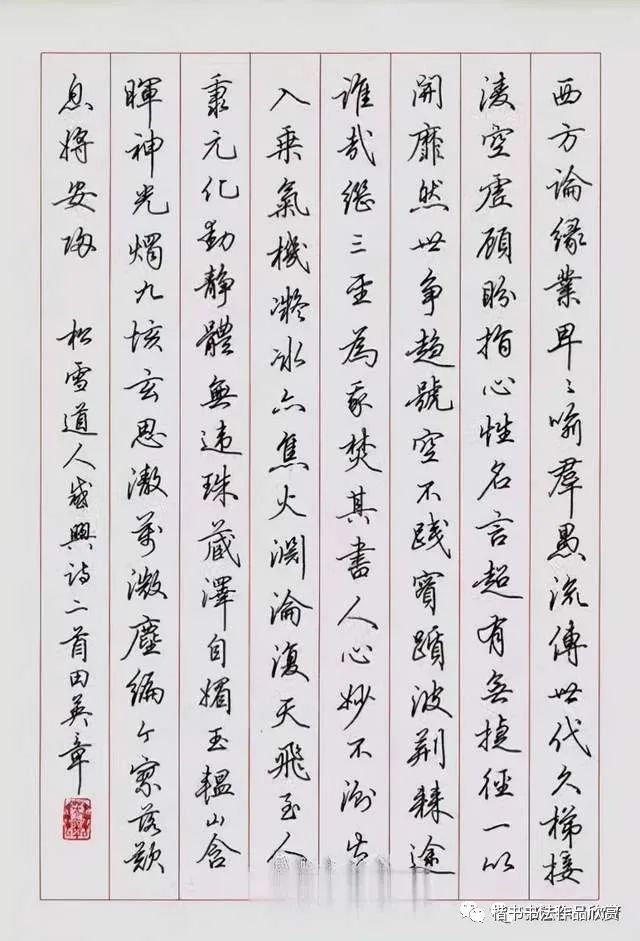 西方論緣業卑〻喻羣愚流傳世代久梯接
凌空虛顧盼指心性名言超有無捷徑一以
開靡然世爭趨號空不踐實躓彼荊棘途
誰哉繼三聖為我焚其書人心妙不測出
入乘氣機凝冰亦焦火淵淪復天飛至人
秉元化動靜體無違珠藏澤自媚玉韞山含
暉神光燭九垓玄思澈萬微塵編今寥落歎
息將安歸 松雪道人感興詩二首田英章
楷书书法作品欣赏